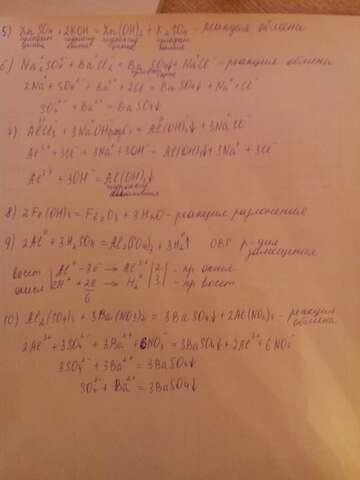 5) ZnSO₄ + 2KOH = Zn(OH)₂ + K₂SO₄ - реакция обмена
сульфат цинка гидроксид калия гидроксид цинка сульфат калия
6) Na₂SO₄ + BaCl₂ = BaSO₄↓ + NaCl - реакция обмена
2Na⁺ + SO₄²⁻ + Ba²⁺ + 2Cl⁻ = BaSO₄↓ + Na⁺ + Cl⁻
SO₄²⁻ + Ba²⁺ = BaSO₄↓
7) AlCl₃ + 3NaOH = Al(OH)₃↓ + 3NaCl
Al³⁺ + 3Cl⁻ + 3Na⁺ + 3OH⁻ = Al(OH)₃↓ + 3Na⁺ + 3Cl⁻
Al³⁺ + 3OH⁻ = Al(OH)₃↓
гидроксид алюминия
8) 2Fe(OH)₃ = Fe₂O₃ + 3H₂O - реакция разложения
9) 2Al⁰ + 3H₂SO₄ = Al₂(SO₄)₃ + 3H₂⁰↑ ОВР р-ция замещения
восст Al⁰ - 3e⁻ → Al³⁺ | 2 | - пр. окисл.
окисл 2H⁺ + 2e → H₂⁰ | 3 | - пр. восст
6
10) Al₂(SO₄)₃ + 3Ba(NO₃)₂ = 3BaSO₄↓ + 2Al(NO₃)₃ - реакция обмена
2Al³⁺ + 3SO₄²⁻ + 3Ba²⁺ + 6NO₃⁻ = 3BaSO₄↓ + 2Al³⁺ + 6NO₃⁻
3SO₄²⁻ + 3Ba²⁺ = 3BaSO₄↓
SO₄²⁻ + Ba²⁺ = 3BaSO₄↓